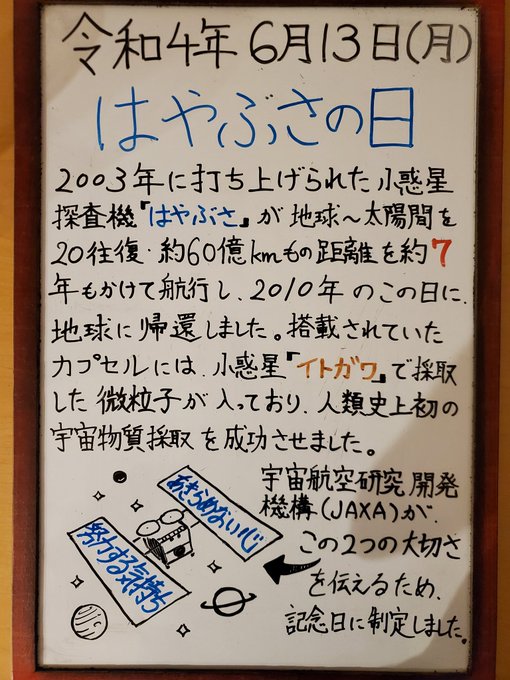 令和4年 6月13日(月)
はやぶさの日
2003年に打ち上げられた小惑星
探査機『はやぶさ』が 地球～太陽間を
20往復・約60億kmもの距離を約7
年もかけて航行し、2010年 のこの日に、
地球に帰還しました。搭載されていた
カプセルには、小惑星『イトカワ』で採取
した 微粒子が 入っており、人類史上初の
宇宙物質採取を成功させました。
宇宙航空研究開発
機構(JAXA)が、
この2つの大切さ
を伝えるため、
記念日に制定しました。
あきらめない心
努力する気持ち